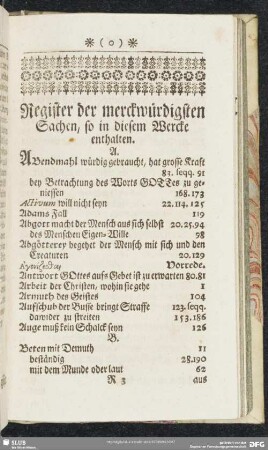 * ( o ) *
Register der merckwürdigsten
Sachen, so in diesem Wercke
enthalten.
A.
ABendmahl würdig gebraucht, hat grosse Kraft
83. seqq. 91
bey Betrachtung des Worts GOTTes zu ge-
niessen 168. 173
Activum will nicht seyn 22. 114. 125
Adams Fall 119
Abgott macht der Mensch aus sich selbst 20. 25. 94
des Menschen Eigen-Wille 98
Abgötterey begehet der Mensch mit sich und den
Creaturen 20. 129
Vorrede.
Antwort GOttes aufs Gebet ist zu erwarten 80. 81
Arbeit der Christen, wohin sie gehe 1
Armuth des Geistes 104
Aufschub der Busse bringt Straffe 123. seqq.
dawider zu streiten 153. 186
Auge muß kein Schalck seyn 126
B.
Beten mit Demuth 11
beständig 28. 190
mit dem Munde oder laut 62
R 3 aus
SLUB
DFG